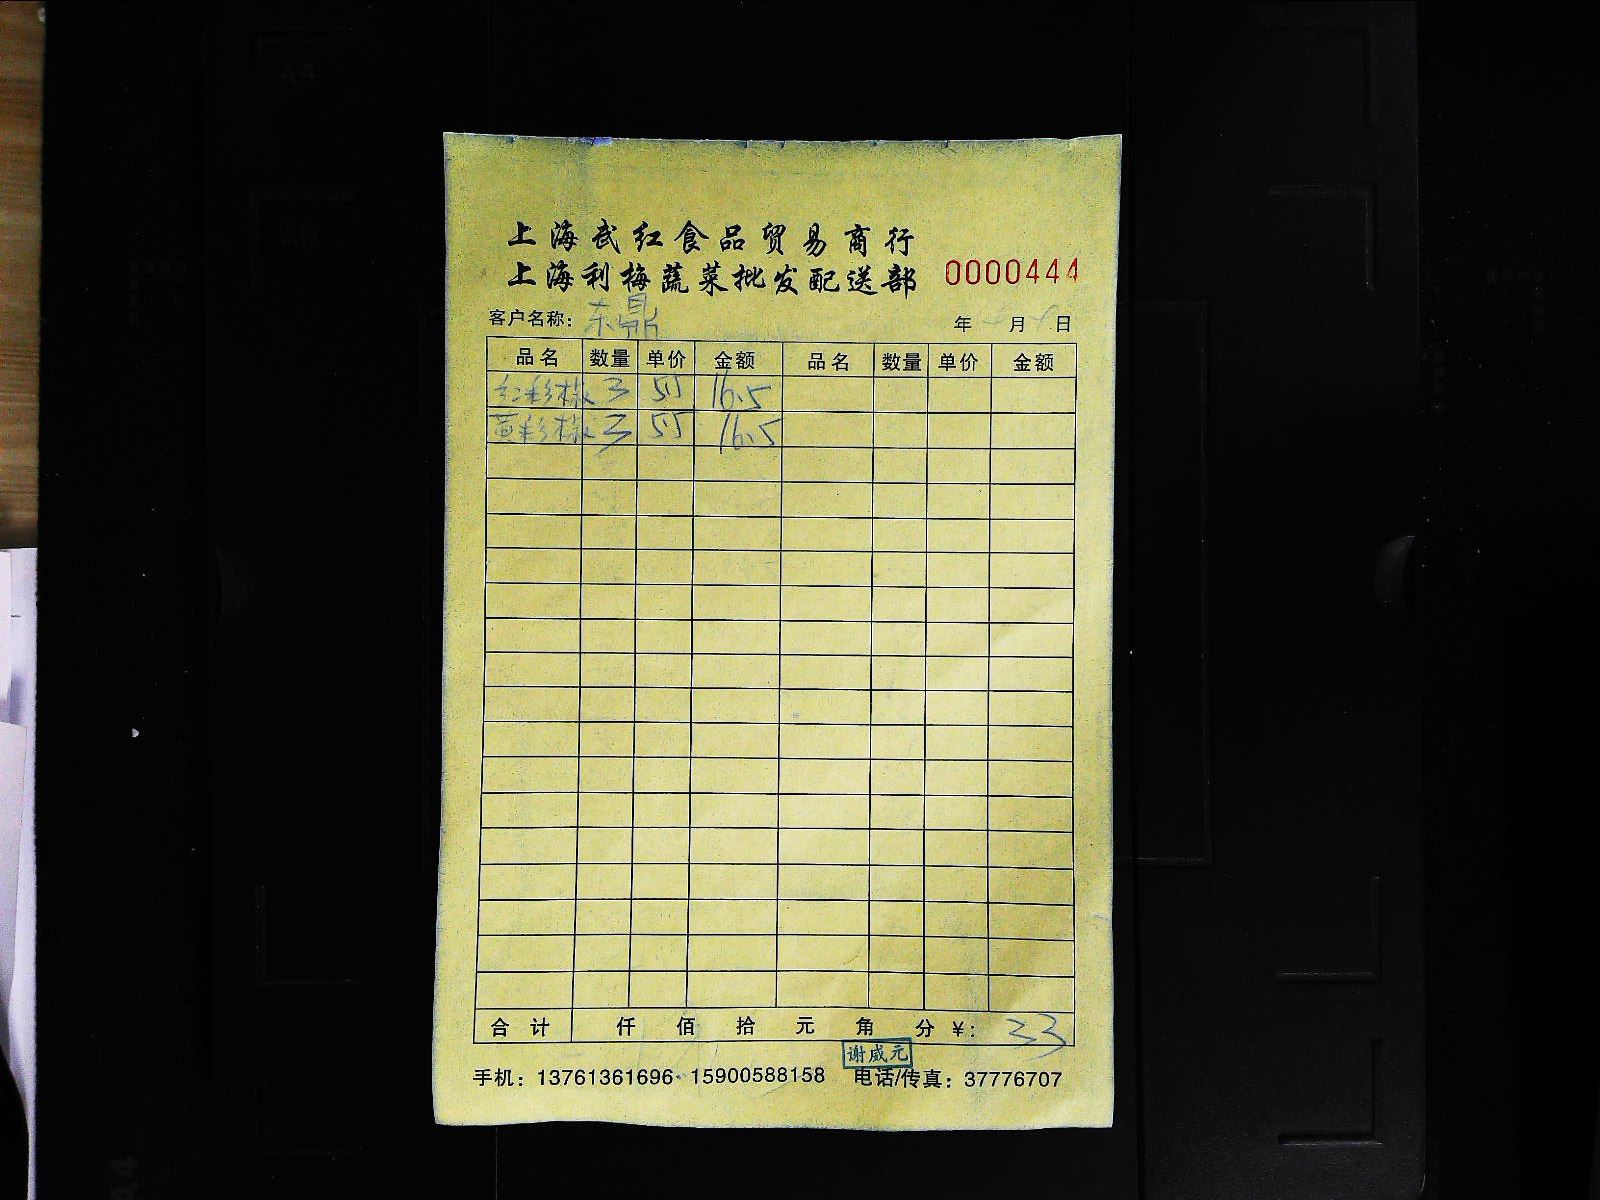 上海武红食品贸易商行
上海利梅蔬菜批发配送部 0000444
客户名称: 东鼎 年 月 日
品名 数量 单价 金额 品名 数量 单价 金额
红彩椒 3 55 16.5
黄彩椒 3 55 16.5
合计 仟 佰 拾 元 角 分 ¥: 33
谢威元
手机: 13761361696 15900588158 电话/传真: 37776707
A4
A5
A4